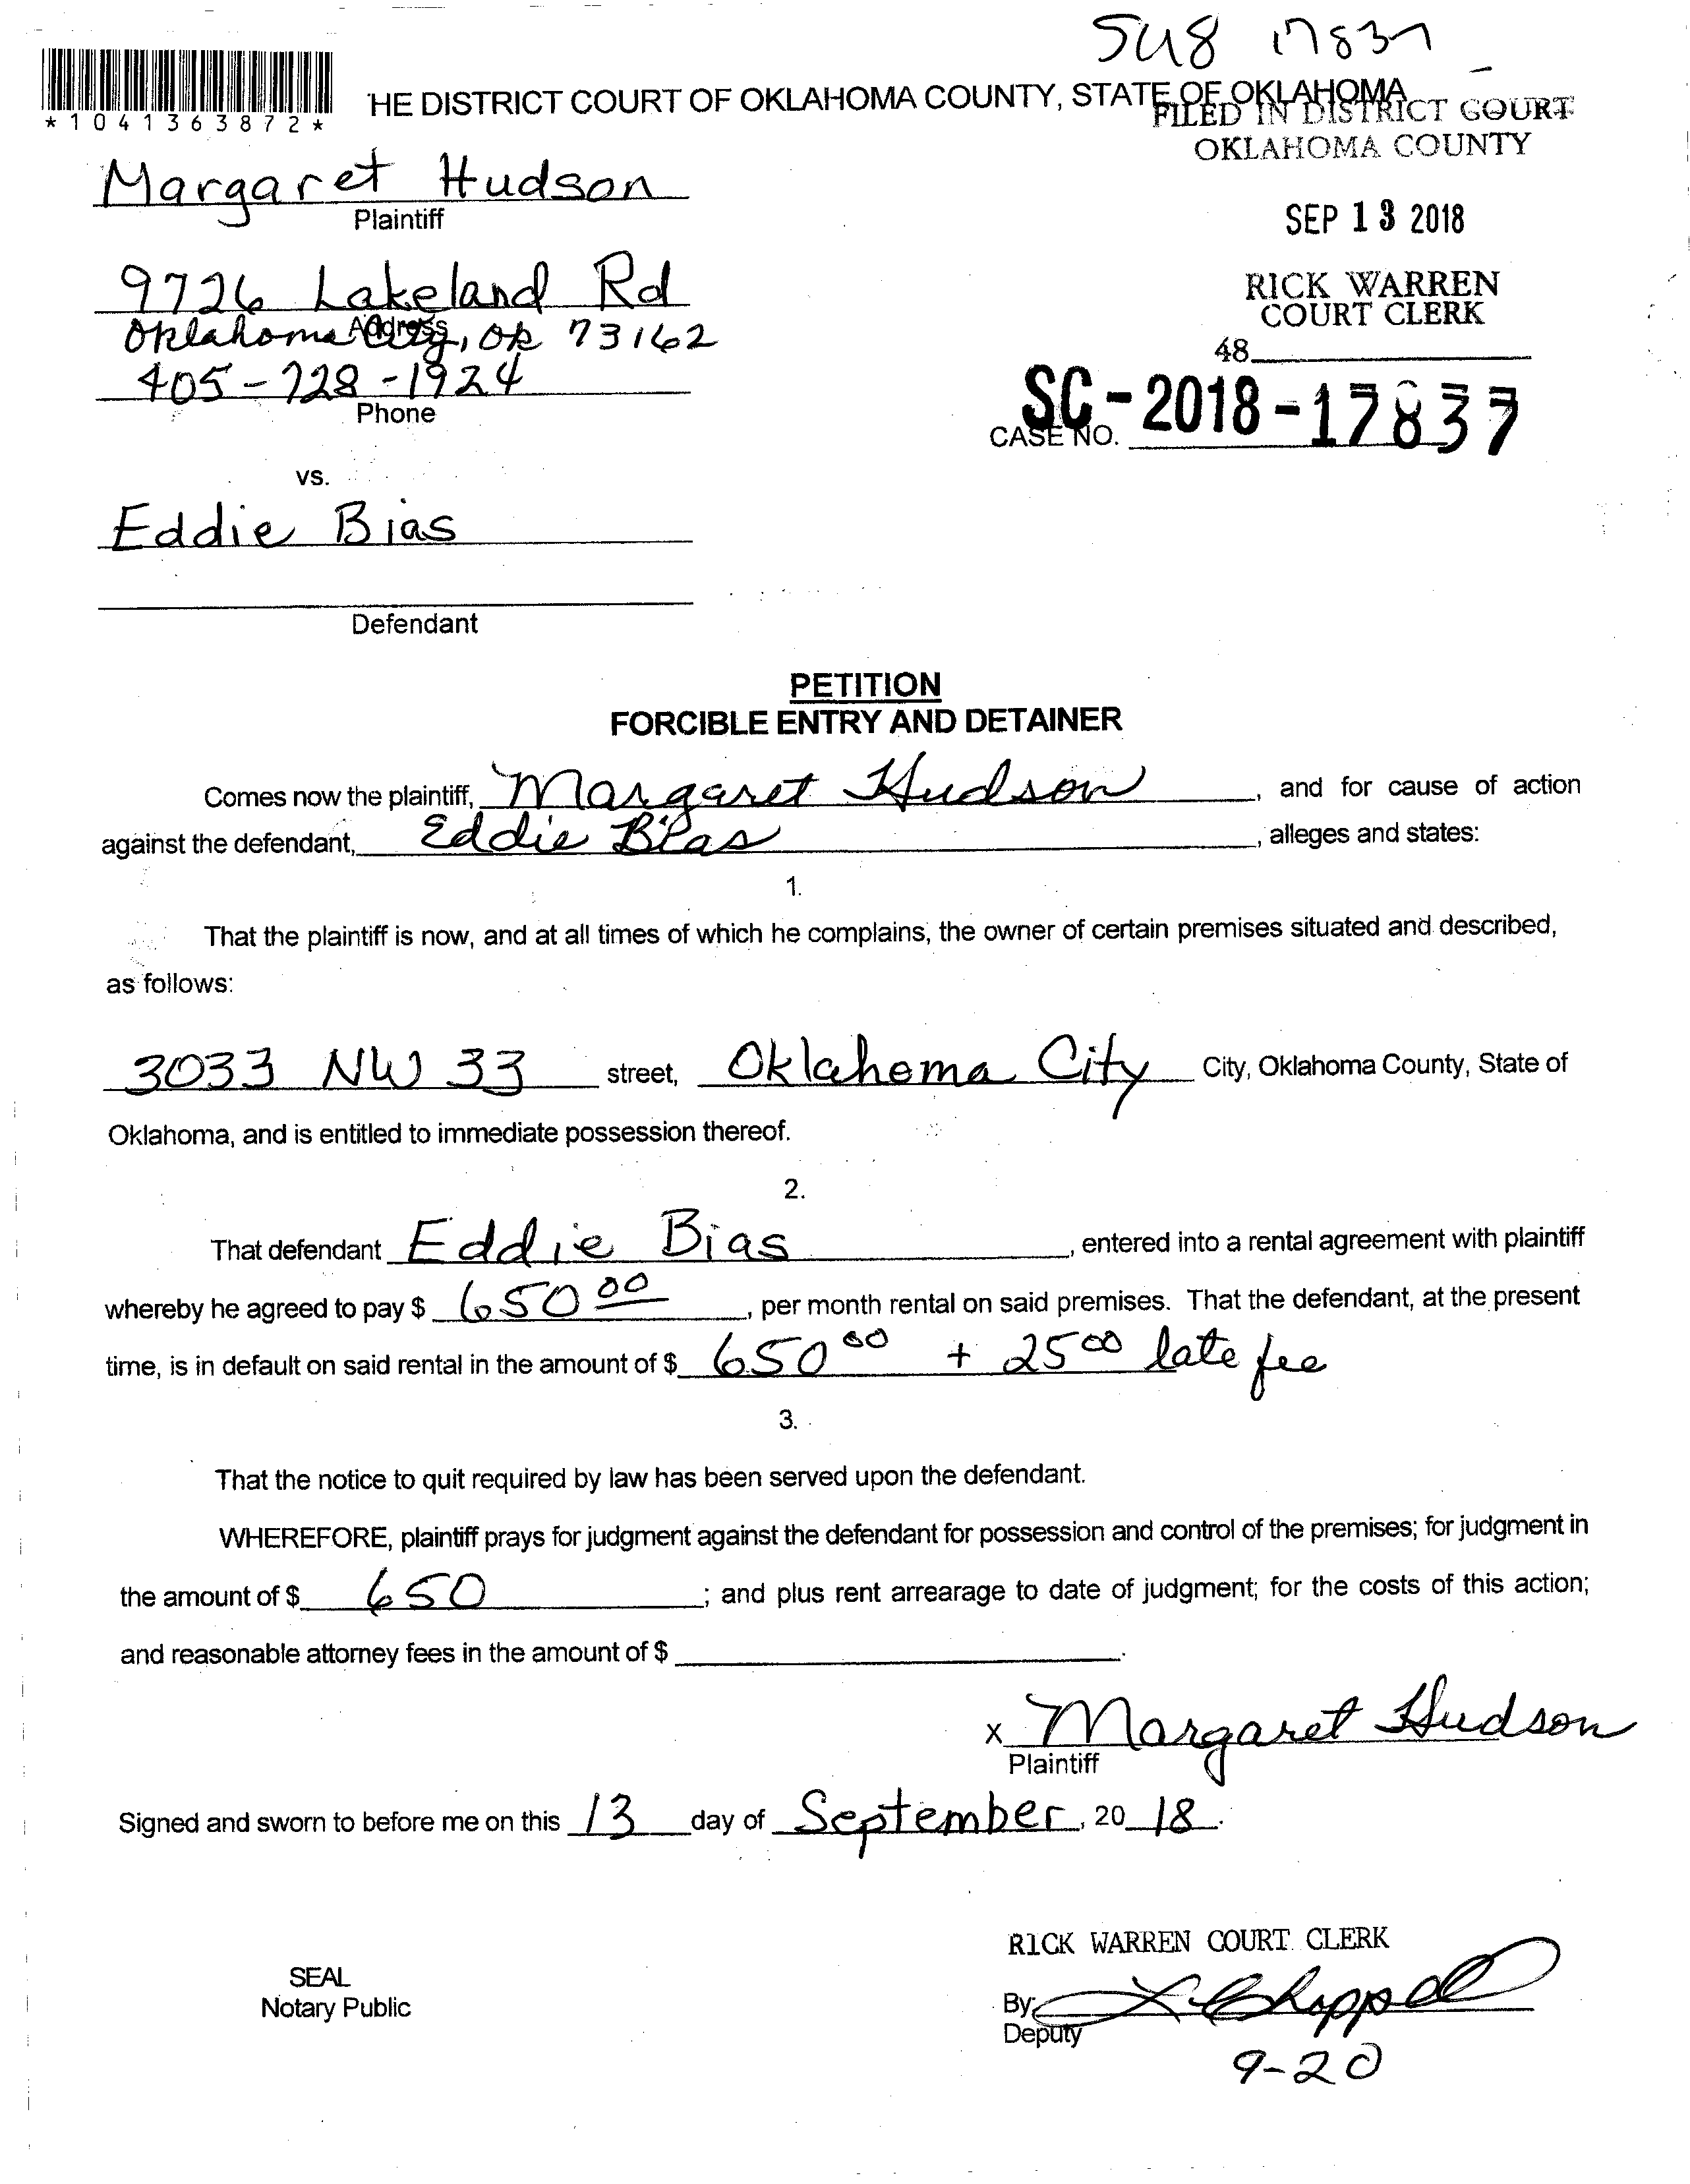 SC18 17837
*1041363872*
HE DISTRICT COURT OF OKLAHOMA COUNTY, STATE OF OKLAHOMA
FILED IN DISTRICT COURT
OKLAHOMA COUNTY
Margaret Hudson
Plaintiff
SEP 13 2018
9726 Lakeland Rd
Address
Oklahoma City, OK 73162
RICK WARREN
COURT CLERK
405-728-1924
Phone
48
CASE NO. SC-2018-17837
vs.
Eddie Bias
Defendant
PETITION
FORCIBLE ENTRY AND DETAINER
Comes now the plaintiff, Margaret Hudson, and for cause of action
against the defendant, Eddie Bias, alleges and states:
1.
That the plaintiff is now, and at all times of which he complains, the owner of certain premises situated and described,
as follows:
3033 NW 33 street, Oklahoma City City, Oklahoma County, State of
Oklahoma, and is entitled to immediate possession thereof.
2.
That defendant Eddie Bias, entered into a rental agreement with plaintiff
whereby he agreed to pay $ 650 00, per month rental on said premises. That the defendant, at the present
time, is in default on said rental in the amount of $ 650 00 + 25 00 late fee
3.
That the notice to quit required by law has been served upon the defendant.
WHEREFORE, plaintiff prays for judgment against the defendant for possession and control of the premises; for judgment in
the amount of $ 650; and plus rent arrearage to date of judgment; for the costs of this action;
and reasonable attorney fees in the amount of $ .
x Margaret Hudson
Plaintiff
Signed and sworn to before me on this 13 day of September, 20 18.
RICK WARREN COURT CLERK
SEAL
Notary Public
By
Deputy
9-20